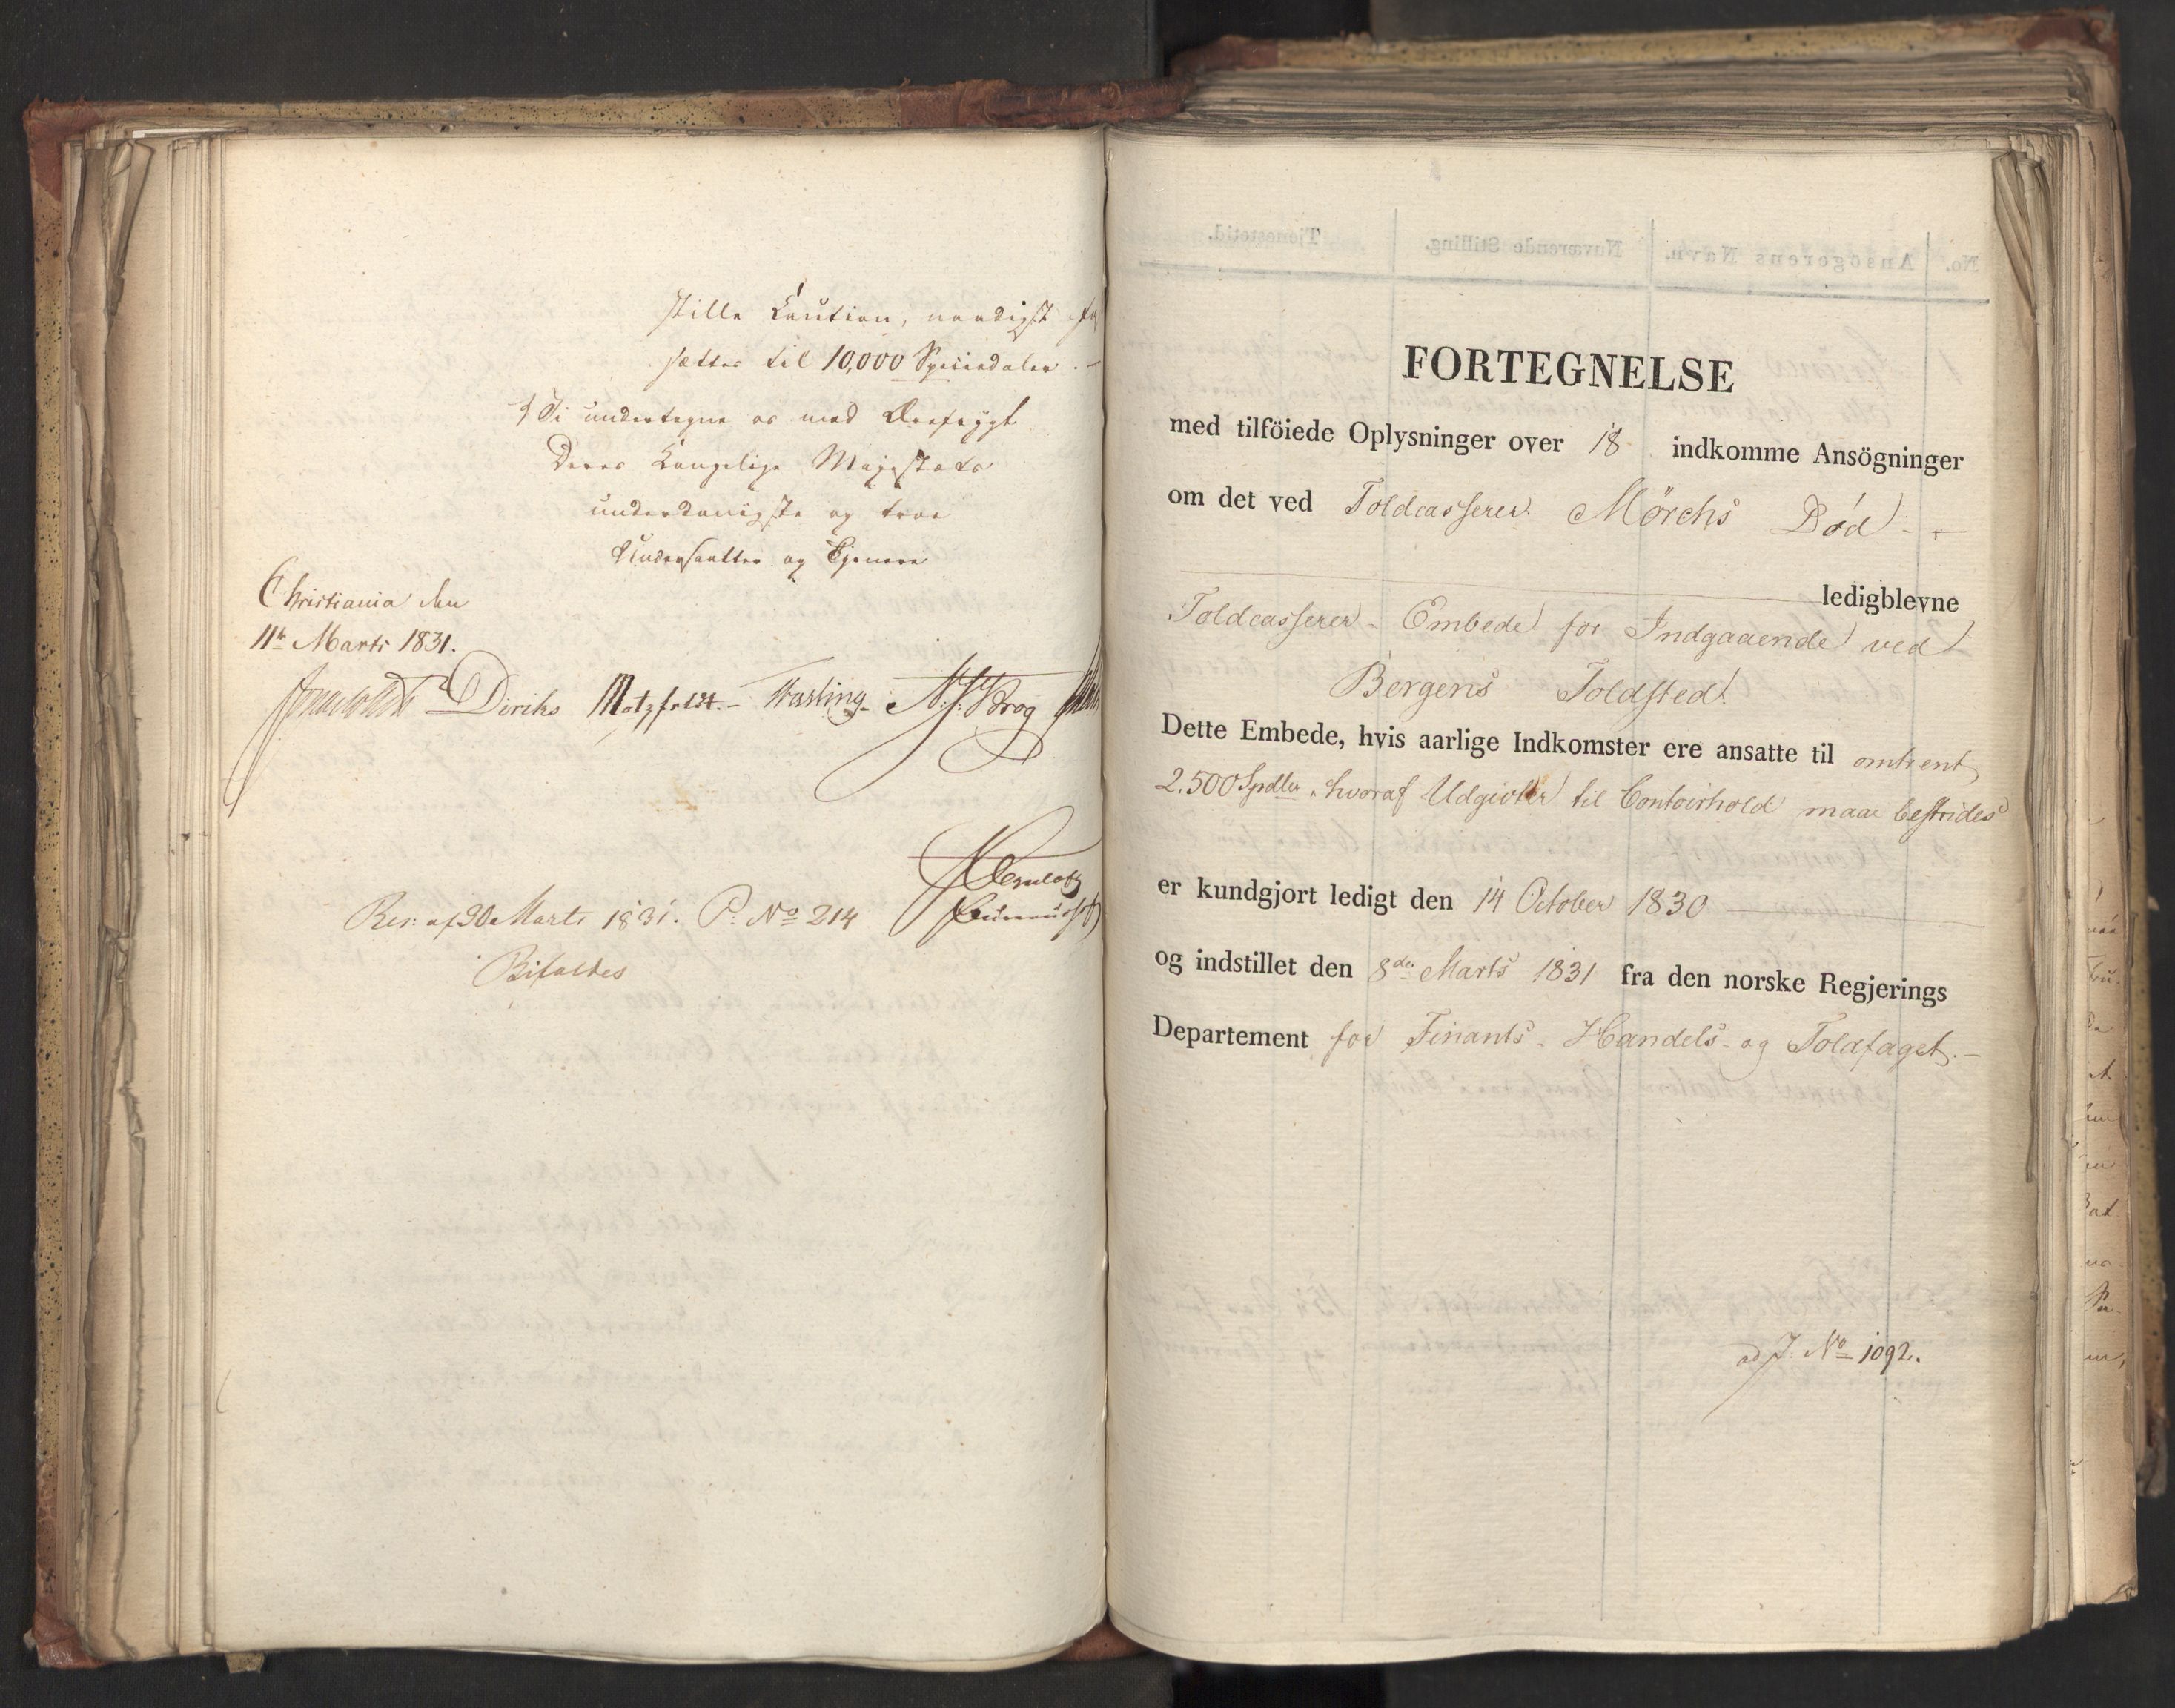 stille Caution, naadigst fast
sættes til 10,000 Speciedaler. -
Vi undertegne os med Ærefrygt
Deres Kongelige Majestæts
underdanigste og troe
Undersaatter og Tjenere
Christiania den
11te Marts 1831.
Diriks Motzfeldt. - Fasting. N. J. Krog
Res: af 20 Marts 1831. P: No 214
Bifaldes
FORTEGNELSE
med tilföiede Oplysninger over 18 indkomme Ansögninger
om det ved Toldcasserer Mörchs Död - -
ledigblevne
Toldcasserer-Embede for Indgaaende ved
Bergens Toldsted.
Dette Embede, hvis aarlige Indkomster ere ansatte til omtrent
2.500 Spdlr, hvoraf Udgivter til Contoirhold maae bestrides
er kundgjort ledigt den 14 October 1830
og indstillet den 8de Marts 1831 fra den norske Regjerings
Departement for Finants- Handels- og Toldfaget. -
ad J. No 1092.